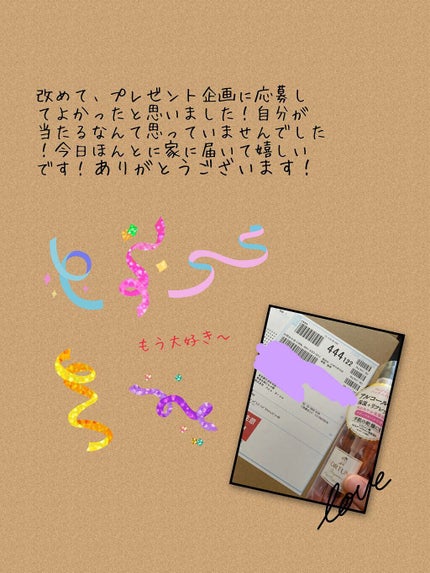 改めて、プレゼント企画に応募し
てよかったと思いました！自分が
当たるなんて思っていませんでした
！今日ほんとに家に届いて嬉しい
です！ありがとうございます！
もう大好き〜
444122
アルコール
love